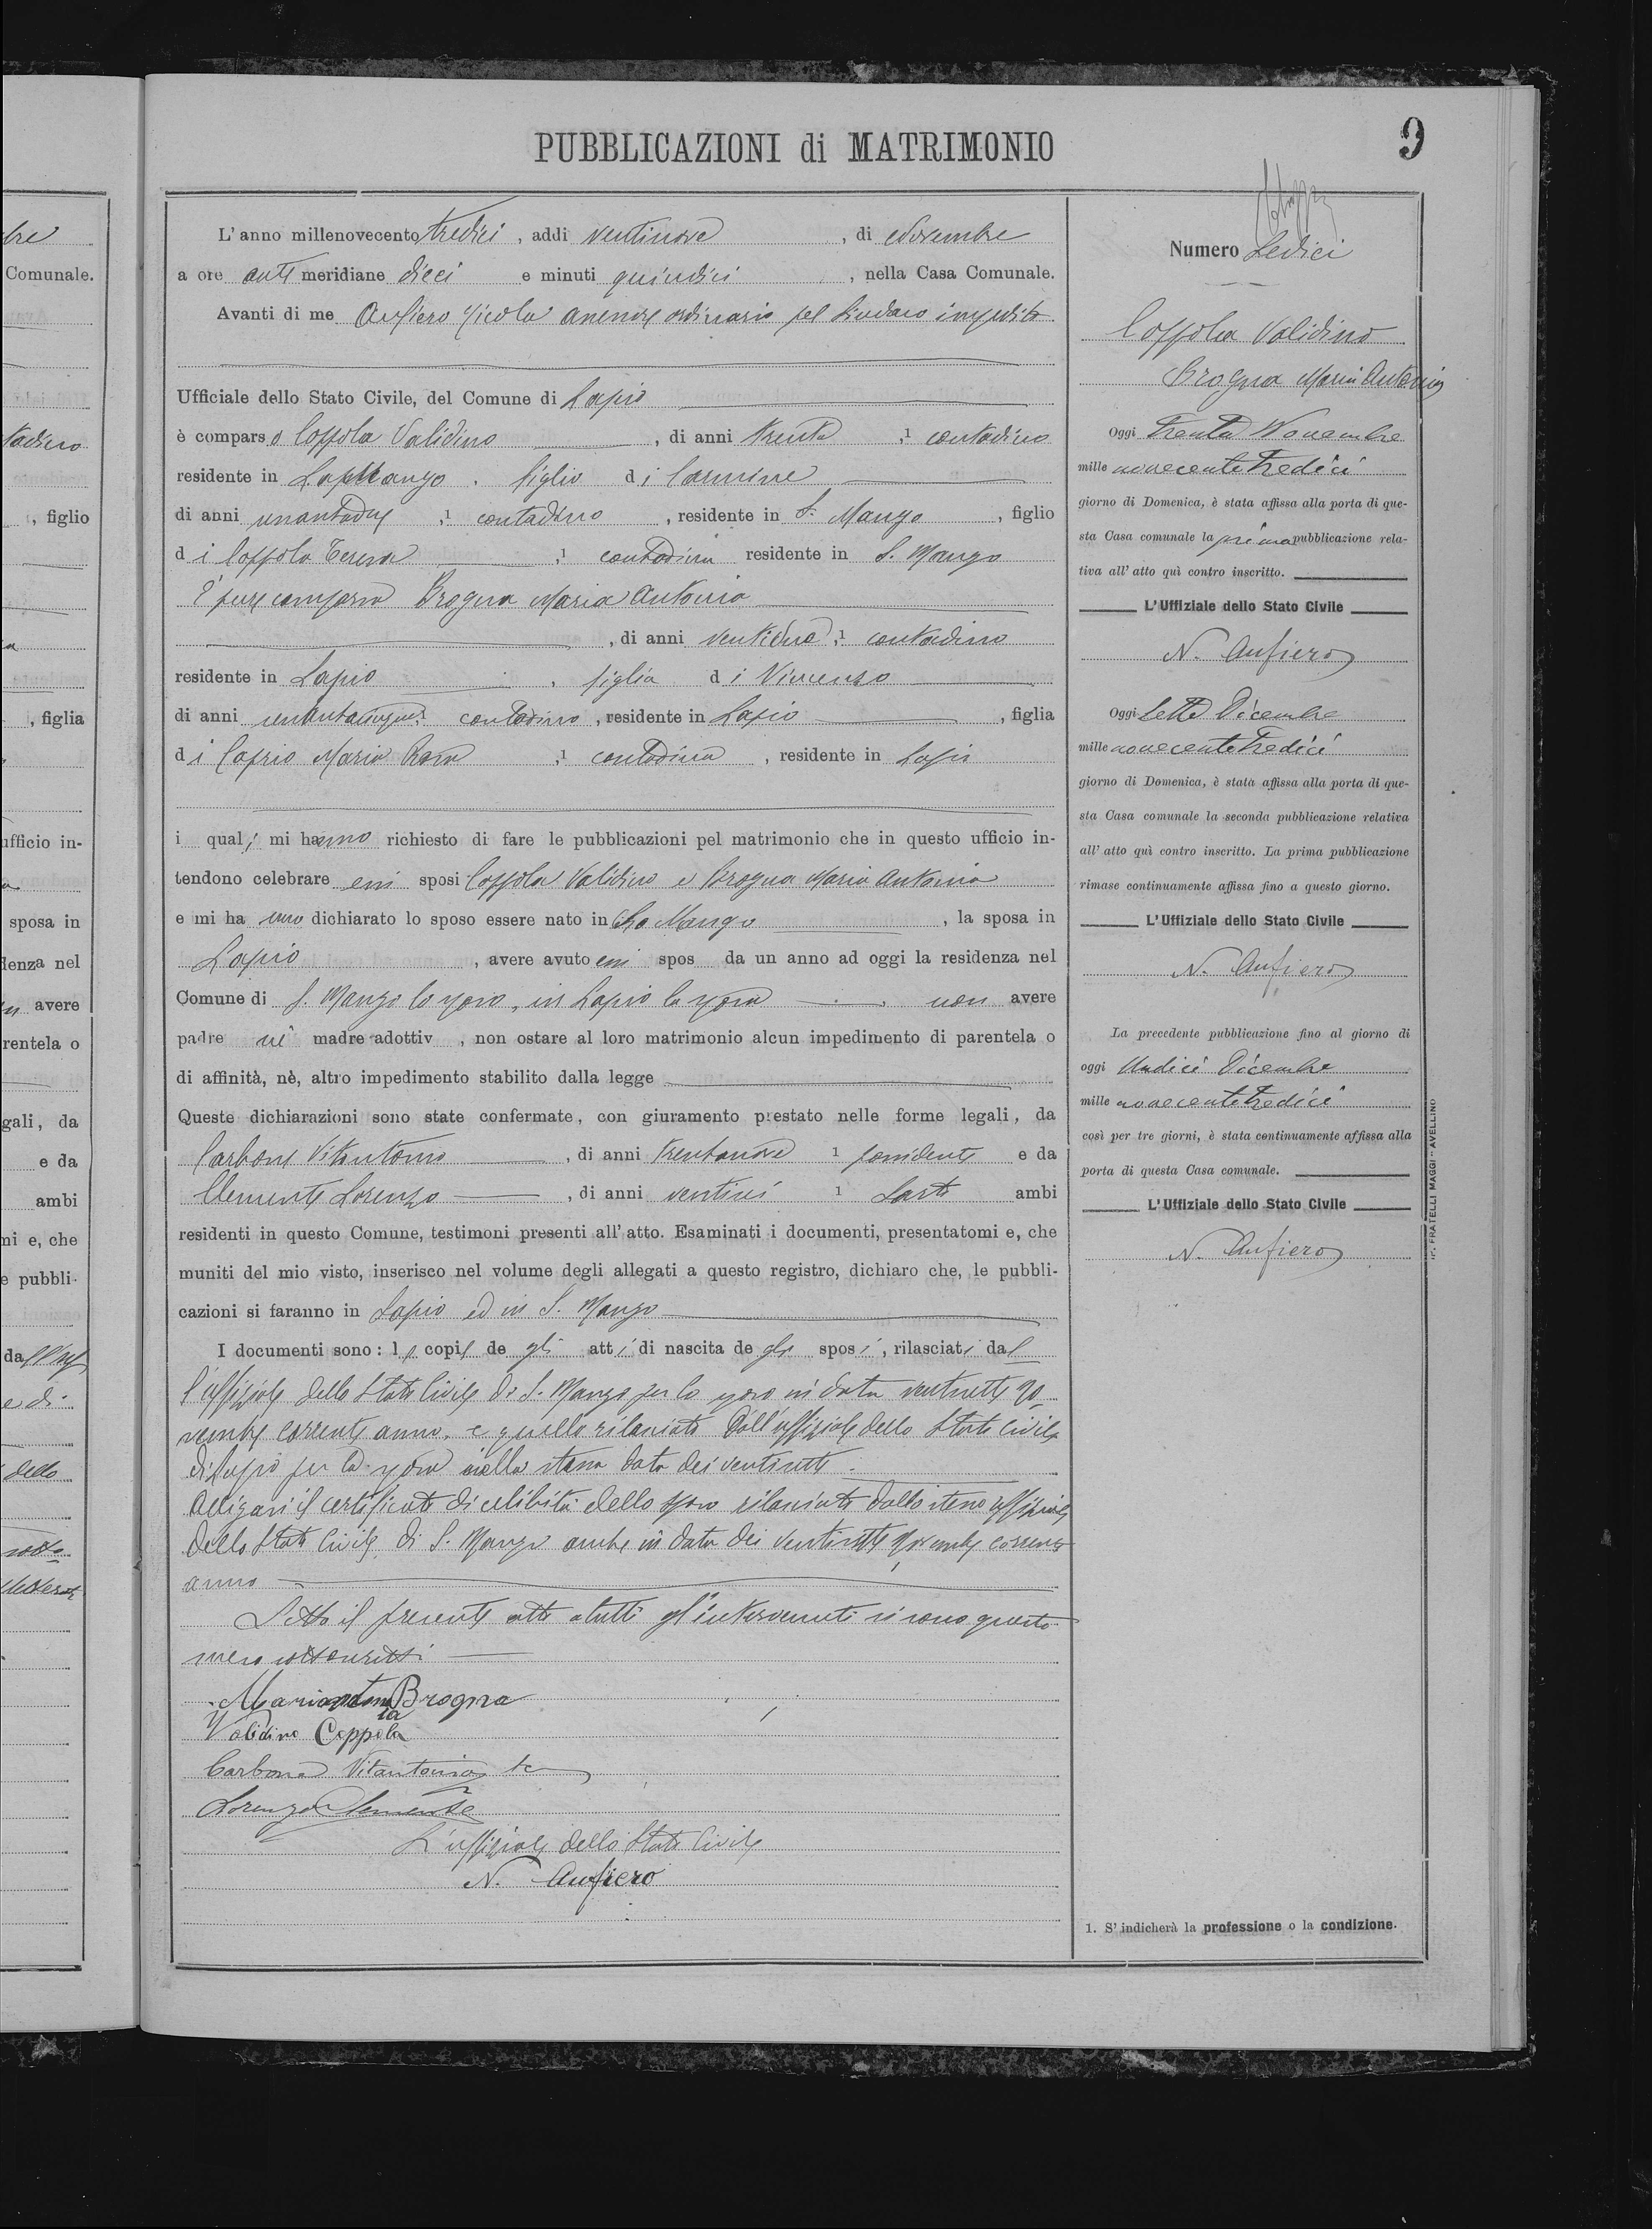 PUBBLICAZIONI di MATRIMONIO
9
L'anno millenovecento tredici, addi ventinove, di Novembre
a ore anti meridiane dieci e minuti quindici, nella Casa Comunale.
Avanti di me Anfiero Nicola assessore ordinario pel Sindaco impedito
Ufficiale dello Stato Civile, del Comune di Lapio
è comparso Coppola Validino, di anni trenta, 1 contadino
residente in S. Mango, figlio di Carmine
di anni, 1 contadino, residente in S. Mango, figlio
di Coppola Teresa, 1 contadina residente in S. Mango
È pure comparsa Brogna Maria Antonia
, di anni ventidue, 1 contadina
residente in Lapio, figlia di Vincenzo
di anni, 1 contadino, residente in Lapio, figlia
di Caprio Maria Rosa, 1 contadina, residente in Lapio
i quali mi hanno richiesto di fare le pubblicazioni pel matrimonio che in questo ufficio in-
tendono celebrare essi sposi Coppola Validino e Brogna Maria Antonia
e mi hanno dichiarato lo sposo essere nato in S. Mango, la sposa in
Lapio, avere avuto essi spos da un anno ad oggi la residenza nel
Comune di S. Mango lo sposo, in Lapio la sposa, non avere
padre nè madre adottiv, non ostare al loro matrimonio alcun impedimento di parentela o
di affinità, nè, altro impedimento stabilito dalla legge
Queste dichiarazioni sono state confermate, con giuramento prestato nelle forme legali, da
Carbone Vitantonio, di anni trentanove 1 possidente e da
Clemente Lorenzo, di anni ventisei 1 Sarto ambi
residenti in questo Comune, testimoni presenti all'atto. Esaminati i documenti, presentatomi e, che
muniti del mio visto, inserisco nel volume degli allegati a questo registro, dichiaro che, le pubbli-
cazioni si faranno in Lapio ed in S. Mango
I documenti sono: le copie de gli atti di nascita de gli sposi, rilasciati dal
l'uffiziale dello Stato Civile di S. Mango per lo sposo in data ventisette No-
vembre corrente anno, e quello rilasciato dall'uffiziale dello Stato Civile
di Lapio per la sposa nella stessa data dei ventisette.
il certificato di celibità dello sposo rilasciato dallo stesso uffiziale
dello Stato Civile di S. Mango anche in data dei ventisette Novembre corrente
anno
Letto il presente atto a tutti gl'intervenuti si sono questi
meco sottoscritti
Mariantonia Brogna
Validino Coppola
Carbone Vitantonio
Lorenzo Clemente
L'uffiziale dello Stato Civile
N. Anfiero
Numero Sedici
Coppola Validino
Brogna Maria Antonia
Oggi trenta Novembre
mille novecentotredici
giorno di Domenica, è stata affissa alla porta di que-
sta Casa comunale la prima pubblicazione rela-
tiva all'atto quì contro inscritto.
L'Uffiziale dello Stato Civile
N. Anfiero
Oggi Sette Dicembre
mille novecentotredici
giorno di Domenica, è stata affissa alla porta di que-
sta Casa comunale la seconda pubblicazione relativa
all'atto quì contro inscritto. La prima pubblicazione
rimase continuamente affissa fino a questo giorno.
L'Uffiziale dello Stato Civile
N. Anfiero
La precedente pubblicazione fino al giorno di
oggi Undici Dicembre
mille novecentotredici
così per tre giorni, è stata continuamente affissa alla
porta di questa Casa comunale.
L'Uffiziale dello Stato Civile
N. Anfiero
1. S'indicherà la professione o la condizione.
FRATELLI MAGGI - AVELLINO
bre
Comunale.
tadino
, figlio
, figlia
ufficio in-
sposa in
denza nel
avere
rentela o
gali, da
e da
ambi
ni e, che
e pubbli-
da
e di
dello